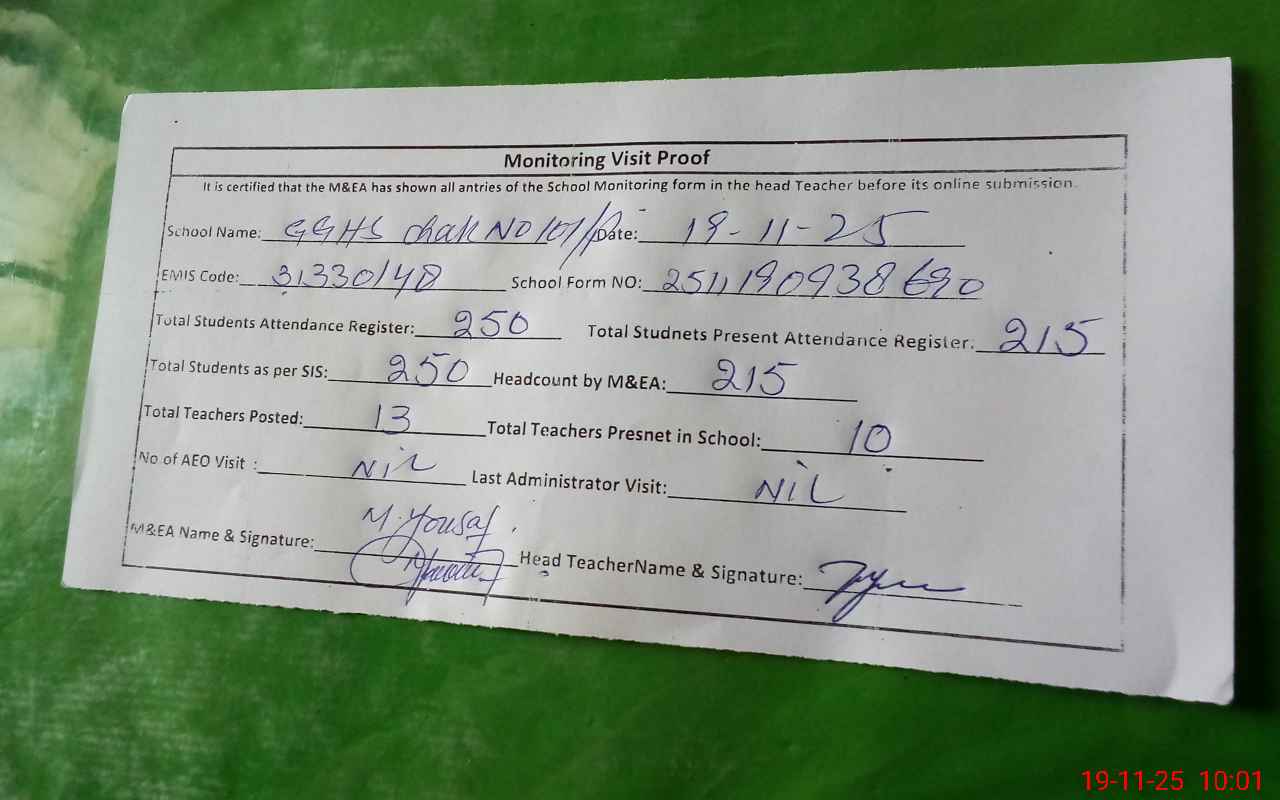 Monitoring Visit Proof
It is certified that the M&EA has shown all antries of the School Monitoring form in the head Teacher before its online submission.
School Name: GGHS chak No 107/P Date: 19-11-25
EMIS Code: 31330148 School Form NO: 2511190938690
Total Students Attendance Register: 250 Total Studnets Present Attendance Register: 215
Total Students as per SIS: 250 Headcount by M&EA: 215
Total Teachers Posted: 13 Total Teachers Presnet in School: 10
No of AEO Visit : Nil Last Administrator Visit: NiL
M&EA Name & Signature: M. Yousaf Head TeacherName & Signature:
19-11-25 10:01